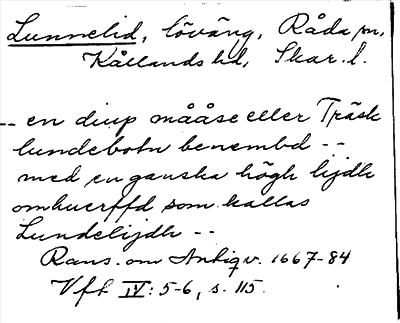 Lunnelid, löväng, Råda sn,
Kållands hd, Skar. l.
-- en diup mååse eller Träsk
lundebotn benembd --
med en ganska högh lijdh
omhuerffd som kallas
Lundelijdh --
Rans. om Antiqv. 1667-84
Vff IV: 5-6, s. 115.